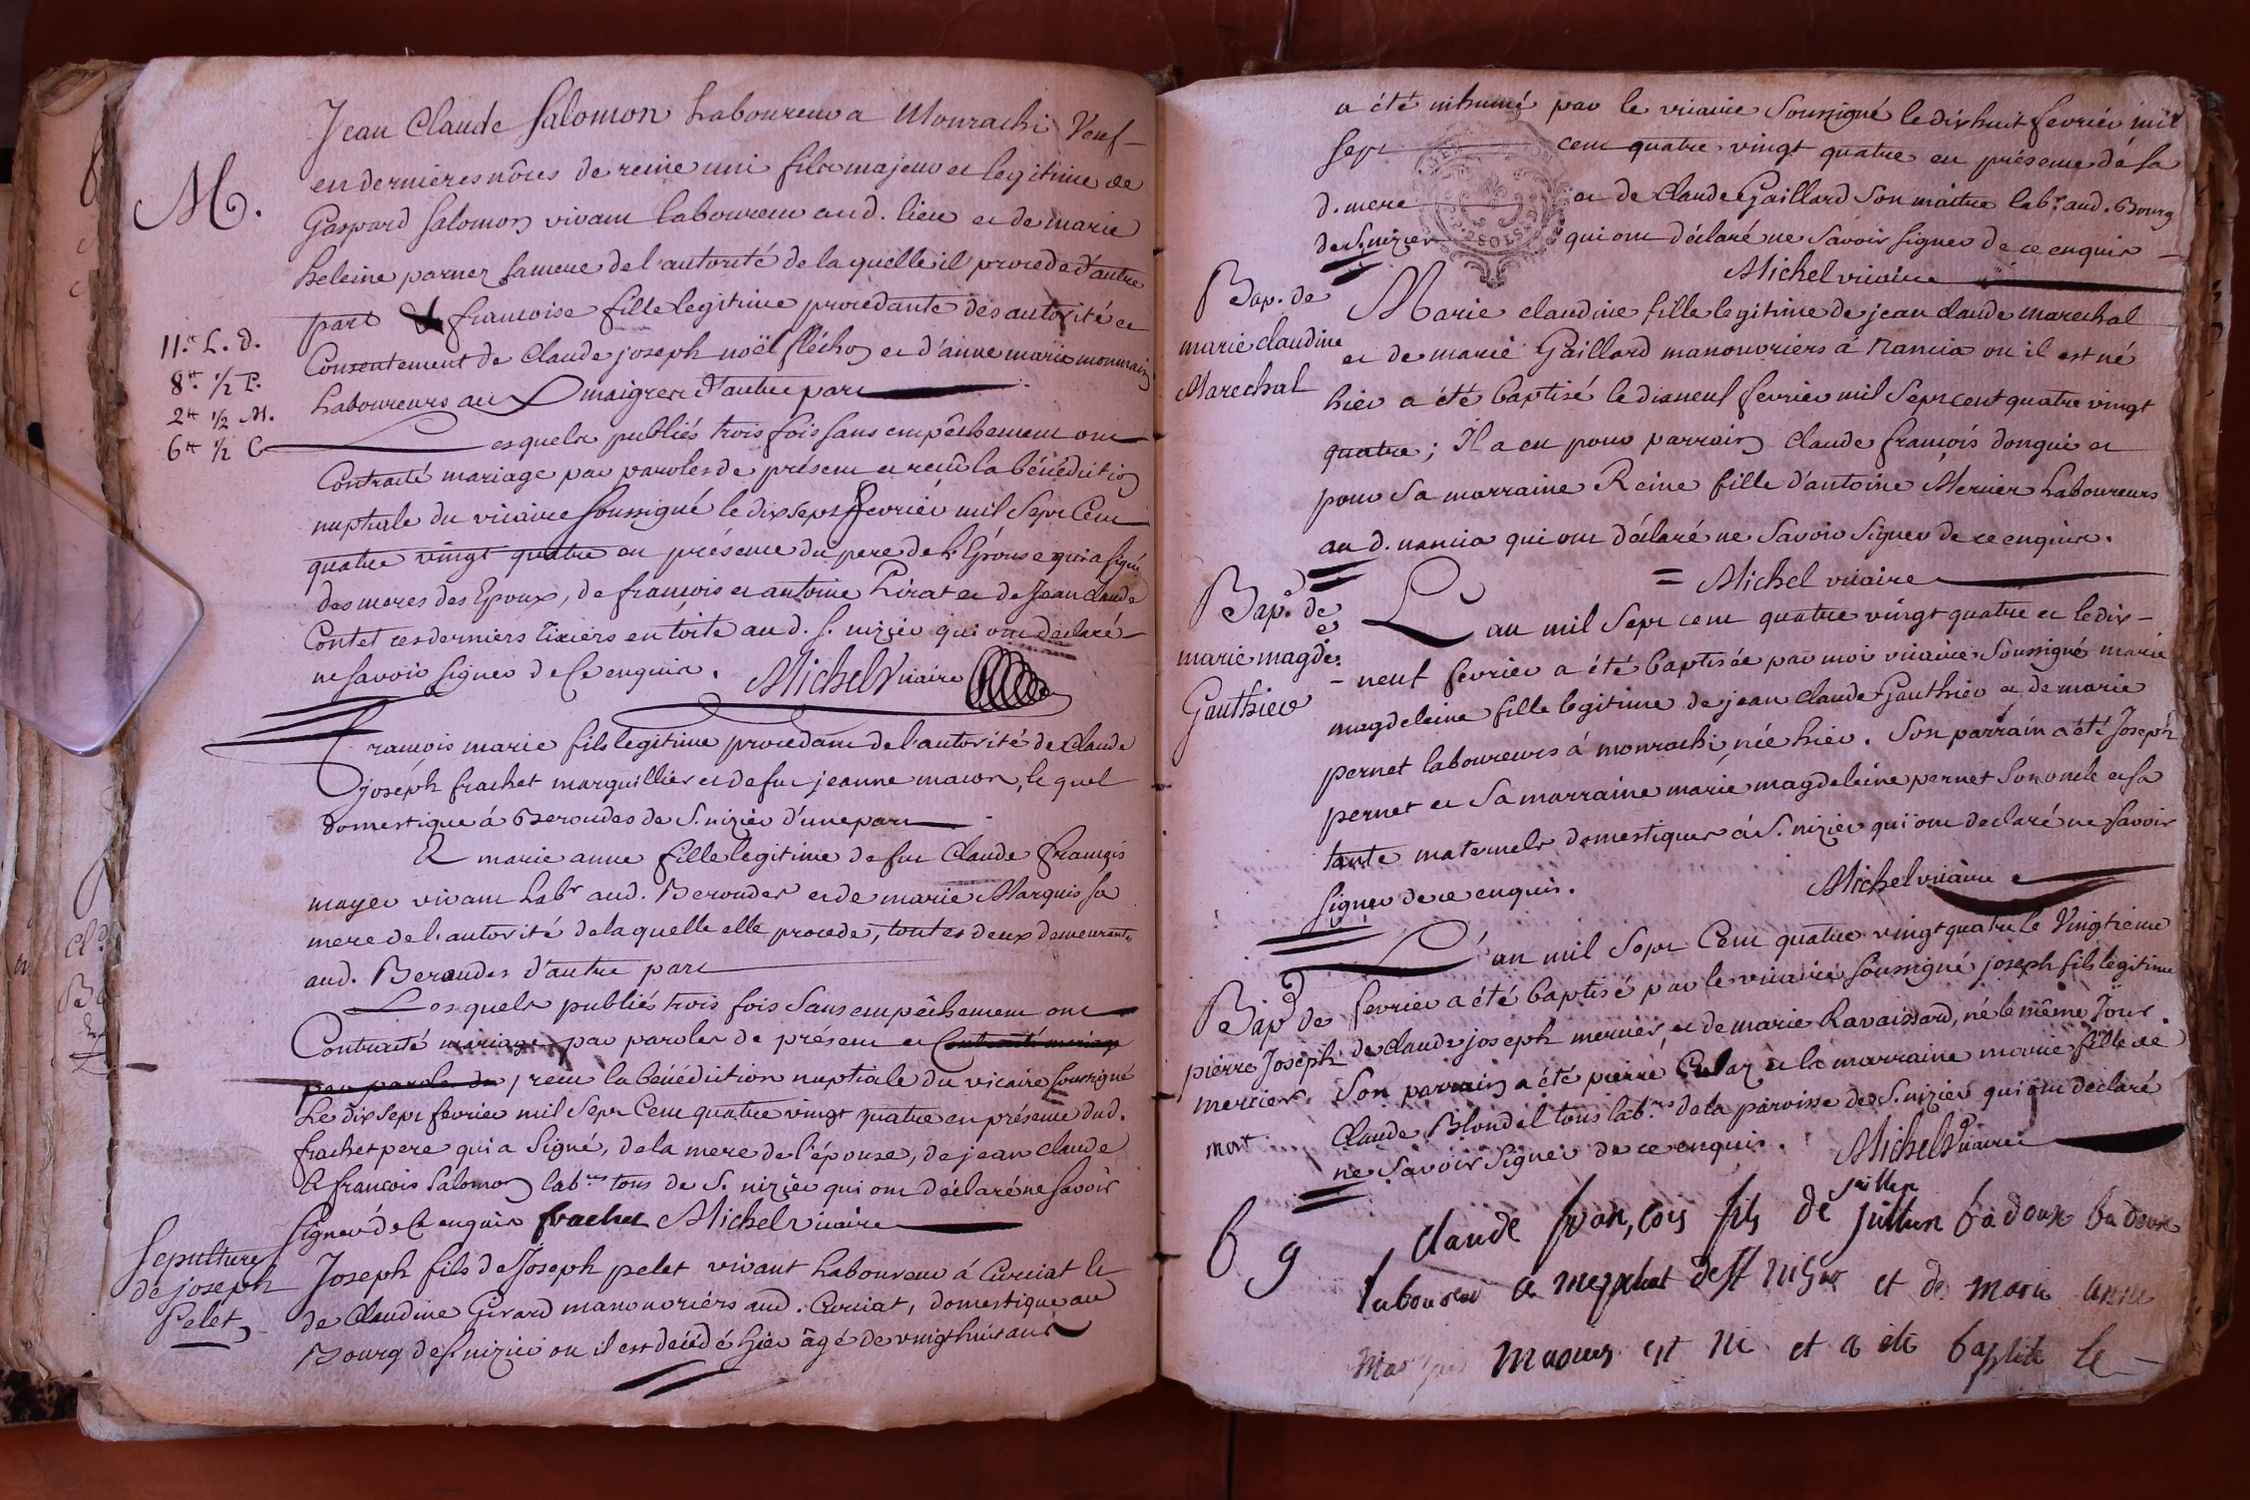 Jean Claude Salomon Laboureur a Monrachi Veuf
M.
en dernieres nôces de reine uni fils majeur et legitime de
Gaspard Salomon vivant laboureur aud. lieu et de marie
heleine parnez sa mere de l'autorité de laquelle il procede d'autre
part & francoise fille legitime procedante des autorité et
11.tt L. d.
Consentement de Claude joseph noël fléchoz et d'anne marie monmain
8.tt 1/2 P.
Laboureurs au maigret d'autre part
2tt 1/2 M.
6tt 1/2 C
Lesquels publiés trois fois sans empêchement ont
Contracté mariage par paroles de présent et recû la bénédiction
nuptiale du vicaire soussigné le dix sept fevrier mil Sept Cent
quatre vingt quatre en présence du pere de l'Epouse qui a signé
des meres des Epoux, de francois et antoine Pirat et de Jean Claude
Contet ces derniers tixiers en toite aud. S. nizier qui ont déclaré
ne savoir signer de Ce enquis. Michel Vicaire
François marie fils legitime procedant de l'autorité de Claude
joseph frachet marguillier et de fue jeanne macon, le quel
domestique á Beroudes de S. nizier d'une part
Et marie anne fille legitime de fu Claude François
mayer vivant Labr aud. Beroudes et de marie Marquis sa
mere de l'autorité de laquelle elle procede, toutes deux demeurantes
aud. Beroudes d'autre part
Lesquels publiés trois fois Sans empêchement ont
Contracté mariage par paroles de présent et Contracté mariage
par paroles de / recu la bénédiction nuptiale du vicaire soussigné
Le dix sept fevrier mil Sept Cent quatre vingt quatre en présence dud.
frachet pere qui a Signé, de la mere de l'épouse, de jean claude
Et francois Salomon labrs tous de S. nizier qui ont déclaré ne savoir
Signer de Ce enquis frachet Michel vicaire
Sepulture
de joseph
Pelet
Joseph fils de Joseph pelet vivant Laboureur á Curciat et
de Claudine Girard manouvriers aud. Curciat, domestique au
Bourg de S. nizier ou il est décédé hier âgé de vingt huit ans
a été inhumé par le vicaire Soussigné le dix huit fevrier mil
sept cent quatre vingt quatre en présence de sa
d. mere et de Claude Gaillard Son maitre labr. aud. Bourg
de S. nizier qui ont déclaré ne Savoir signer de ce enquis
Michel vicaire
Bap. de
marie claudine
Marechal
Marie claudine fille legitime de jean claude marechal
et de marie Gaillard manouvriers á nancia ou il est né
hier a été baptisé le dixneuf fevrier mil Sept cent quatre vingt
quatre; Il a eu pour parrain Claude françois donguis et
pour Sa marraine Reine fille d'antoine Mercier Laboureurs
au d. nancia qui ont déclaré ne Savoir Signer de ce enquis.
= Michel vicaire
Bap. de
marie magde.
Gauthier
L'an mil Sept cent quatre vingt quatre et le dix
neuf fevrier a été baptisée par moi vicaire Soussigné marie
magdeleine fille legitime de jean claude Gauthier et de marie
pernet laboureurs á monrachi, née hier. Son parrain a été Joseph
pernet et Sa marraine marie magdeleine pernet Son oncle et sa
tante maternels domestiques á S. nizier qui ont declaré ne savoir
signer de ce enquis. Michel vicaire
L'an mil Sept Cent quatre vingt quatre le Vingtieme
Bap. de
pierre Joseph
mercier.
mort
fevrier a été baptisé par le vicaire soussigné joseph fils legitime
de claude joseph mercier, et de marie Ravaissard, né le même Jour.
Son parrain a été pierre Culaz et la marraine marie fille de
Claude Blondel tous labrs de la paroisse de S. nizier qui ont déclaré
ne Savoir Signer de ce enquis. Michel Vicaire
B 9
Claude fran,cois fils de jullien badoux badoux
laboureur a et de marie anne
est né et a été baptisé le